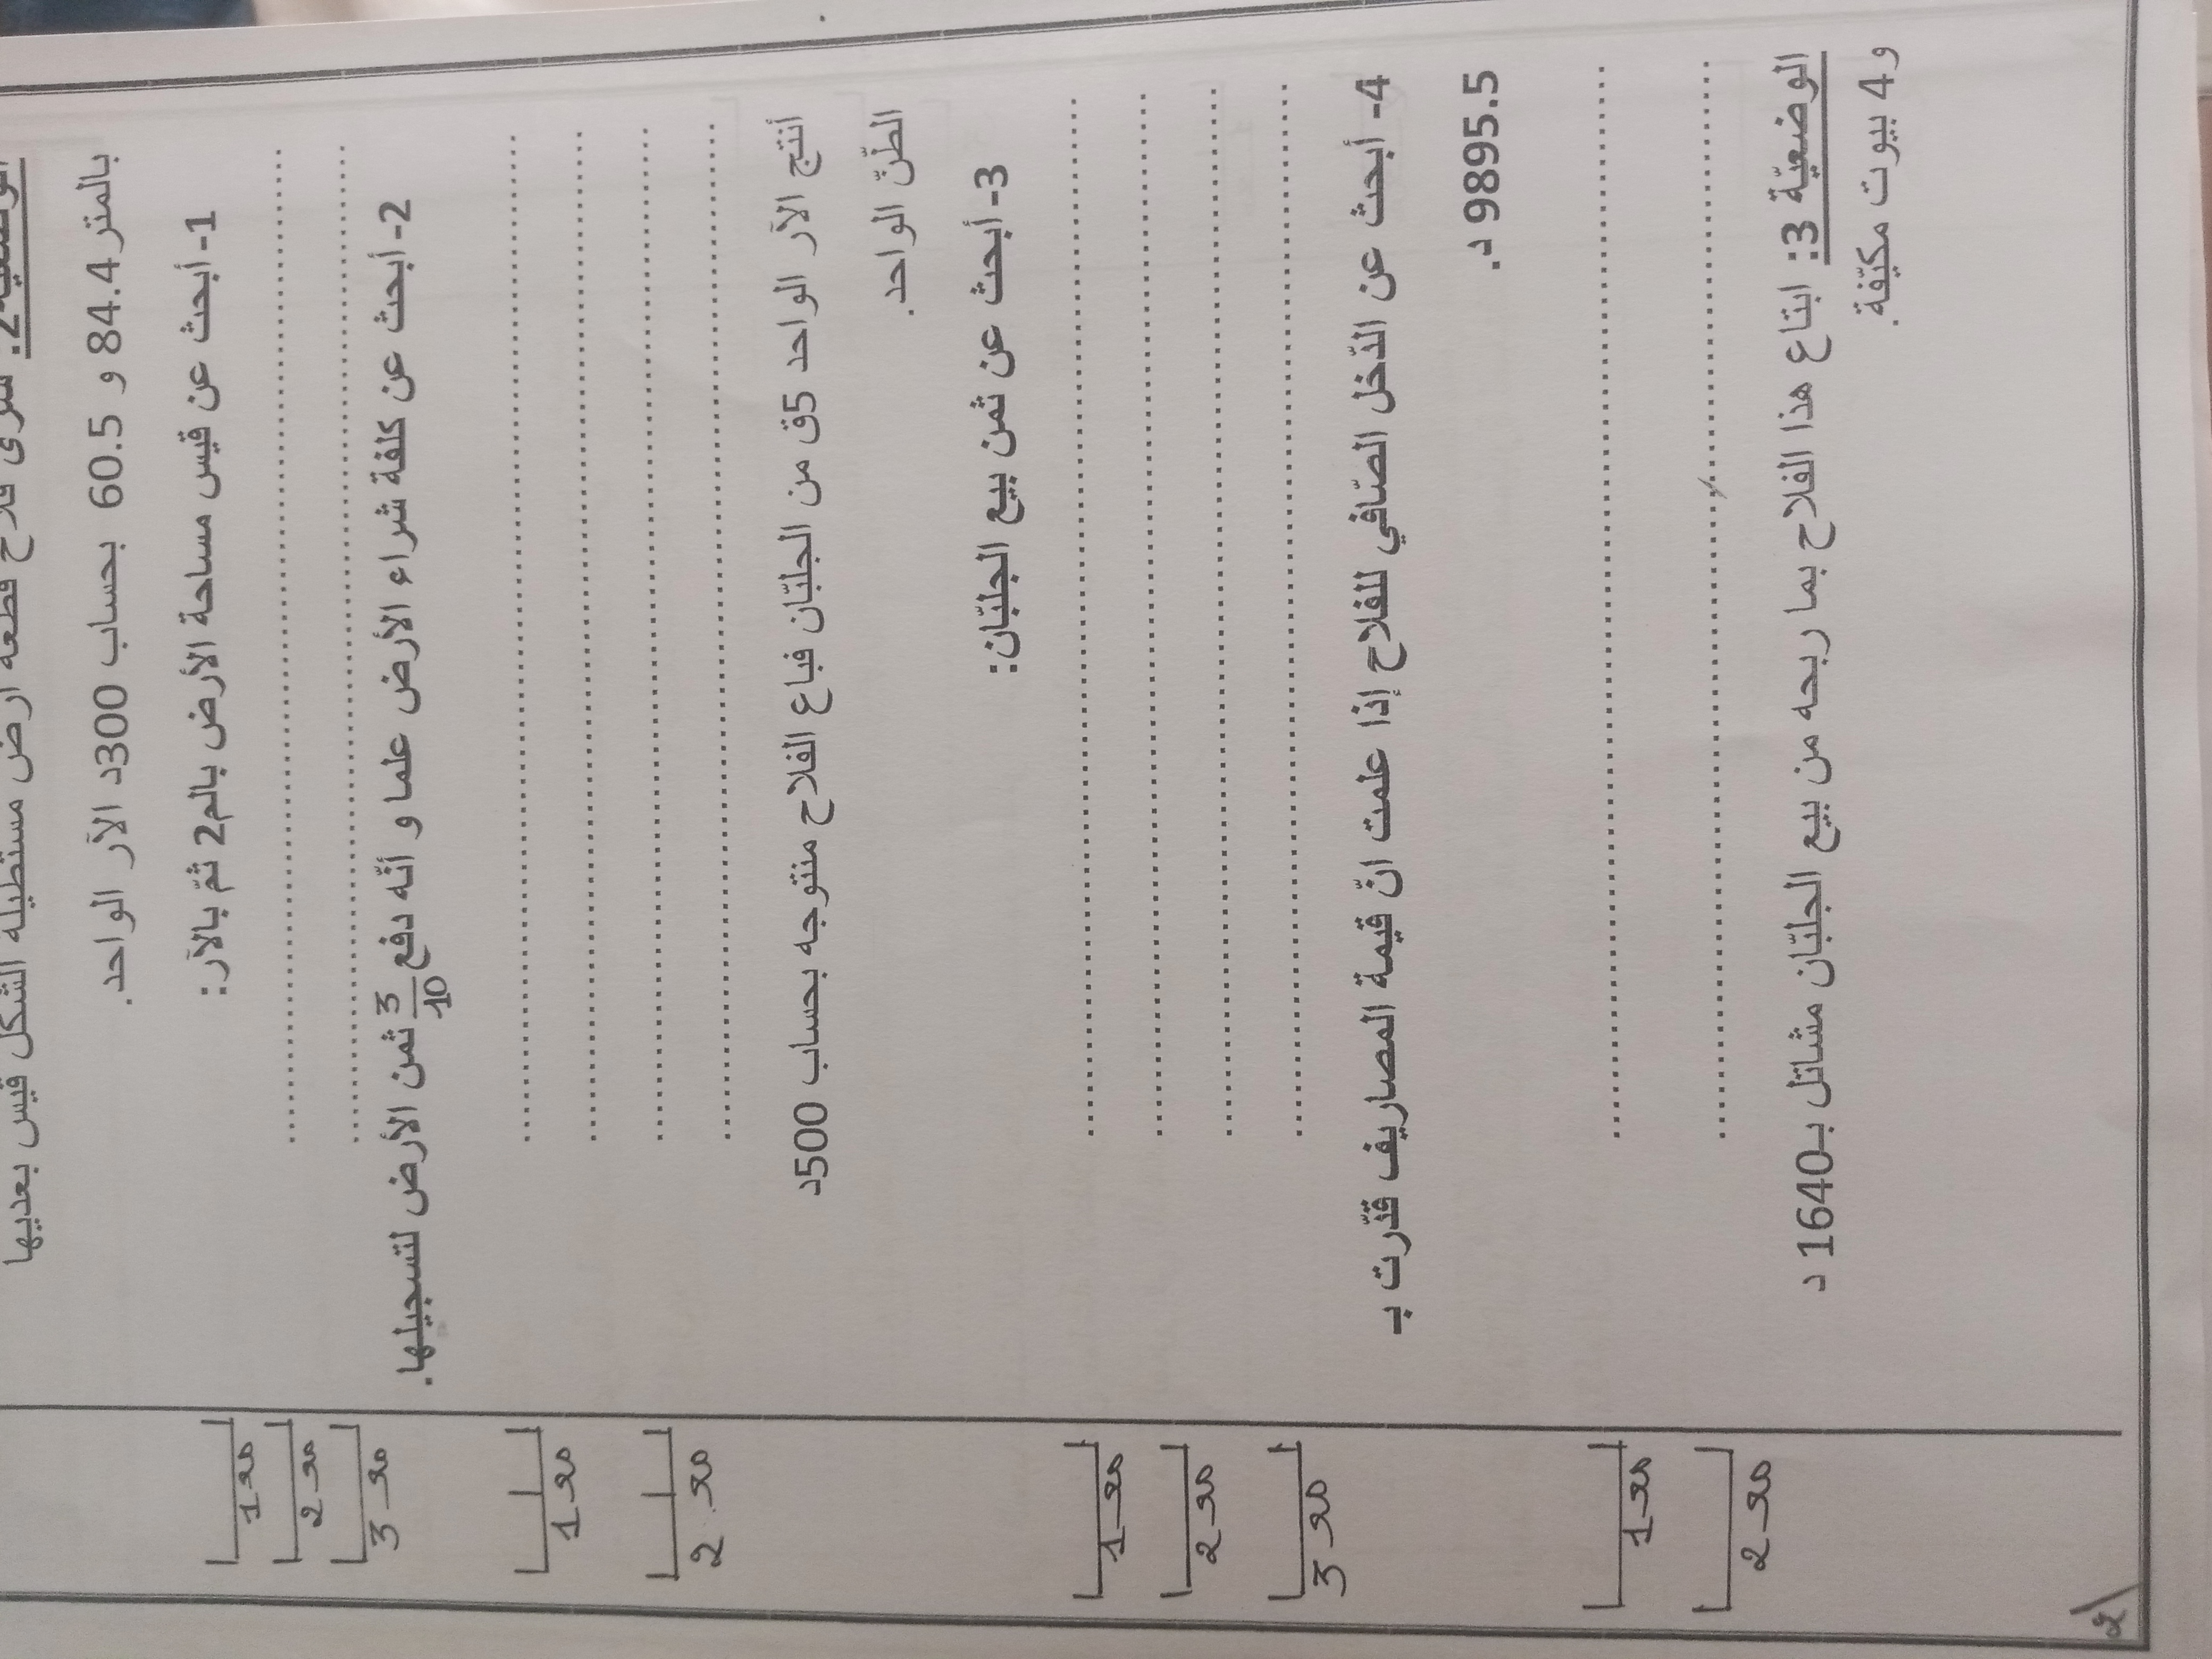 فلاح قطعة أرض مستطيلة الشكل قيس بعديها
بالمتر 84.4 و 60.5 بحساب 300د الآر الواحد.
1- أبحث عن قيس مساحة الأرض بالم2 ثمّ بالآر:
2- أبحث عن كلفة شراء الأرض علما و أنّه دفع 3/10 ثمن الأرض لتسجيلها.
أنتج الآر الواحد 5ق من الجلبّان فباع الفلاح منتوجه بحساب 500د
الطنّ الواحد.
3- أبحث عن ثمن بيع الجلبّان:
4- أبحث عن الدّخل الصّافي للفلاح إذا علمت انّ قيمة المصاريف قدّرت بـ
9895.5 د.
الوضعيّة 3: ابتاع هذا الفلاح بما ربحه من بيع الجلبّان مشاتل بـ1640 د
و4 بيوت مكيّفة.
مع 1
مع 2
مع 3
مع 1
مع 2
مع 1
مع 2
مع 3
مع 1
مع 2